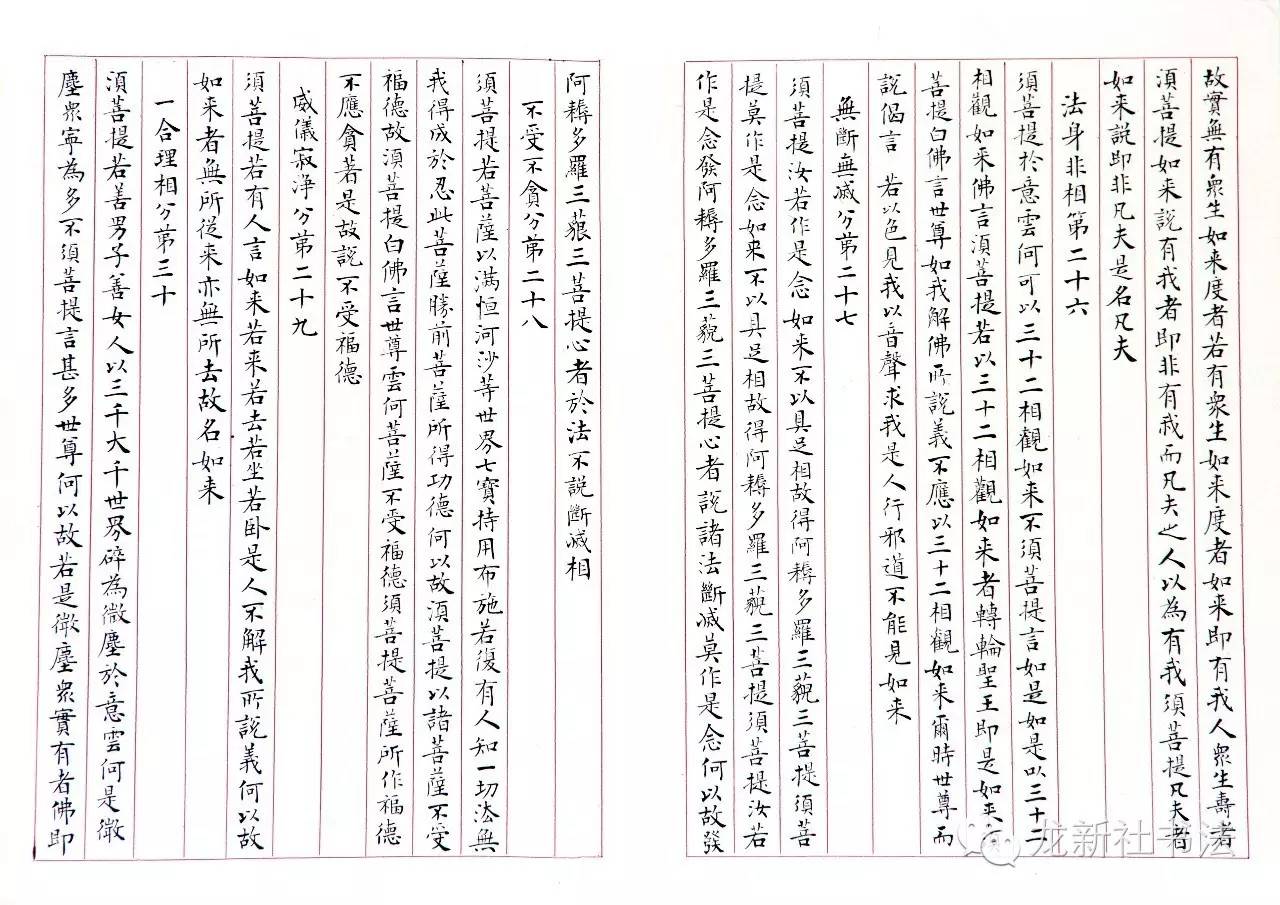 故實無有眾生如来度者若有眾生如来度者如来即有我人眾生壽者
須菩提如来説有我者即非有我而凡夫之人以為有我須菩提凡夫者
如来説即非凡夫是名凡夫
法身非相第二十六
須菩提於意雲何可以三十二相觀如来不須菩提言如是如是以三十二
相觀如来佛言須菩提若以三十二相觀如来者轉輪聖王即是如来
菩提白佛言世尊如我解佛所説義不應以三十二相觀如来爾時世尊而
説偈言 若以色見我以音聲求我是人行邪道不能見如来
無斷無滅分第二十七
須菩提汝若作是念如来不以具足相故得阿耨多羅三藐三菩提須菩
提莫作是念如来不以具足相故得阿耨多羅三藐三菩提須菩提汝若
作是念發阿耨多羅三藐三菩提心者説諸法斷滅莫作是念何以故發
阿耨多羅三藐三菩提心者於法不説斷滅相
不受不貪分第二十八
須菩提若菩薩以滿恒河沙等世界七寶持用布施若復有人知一切法無
我得成於忍此菩薩勝前菩薩所得功德何以故須菩提以諸菩薩不受
福德故須菩提白佛言世尊雲何菩薩不受福德須菩提菩薩所作福德
不應貪著是故説不受福德
威儀寂淨分第二十九
須菩提若有人言如来若来若去若坐若卧是人不解我所説義何以故
如来者無所從来亦無所去故名如来
一合理相分第三十
須菩提若善男子善女人以三千大千世界碎為微塵於意雲何是微
塵眾寧為多不須菩提言甚多世尊何以故若是微塵眾實有者佛即
龙新社书法